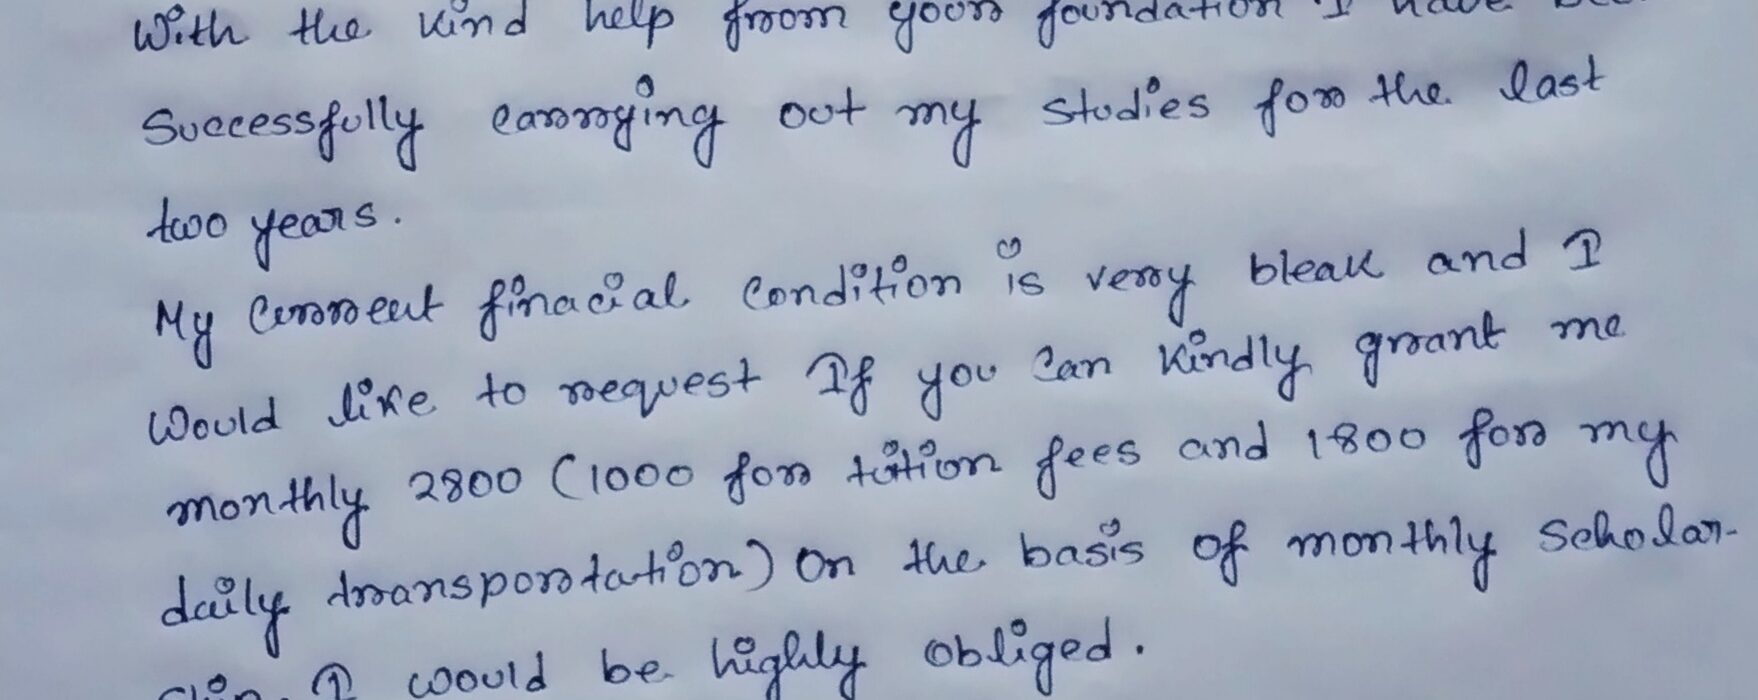 With the kind help from your foundation I have
Successfully carrying out my studies for the last
two years.
My current finacial condition is very bleak and I
Would like to request If you can kindly grant me
monthly 2800 (1000 for tution fees and 1800 for my
daily transportation) On the basis of monthly Scholar-
ship. I would be highly obliged.